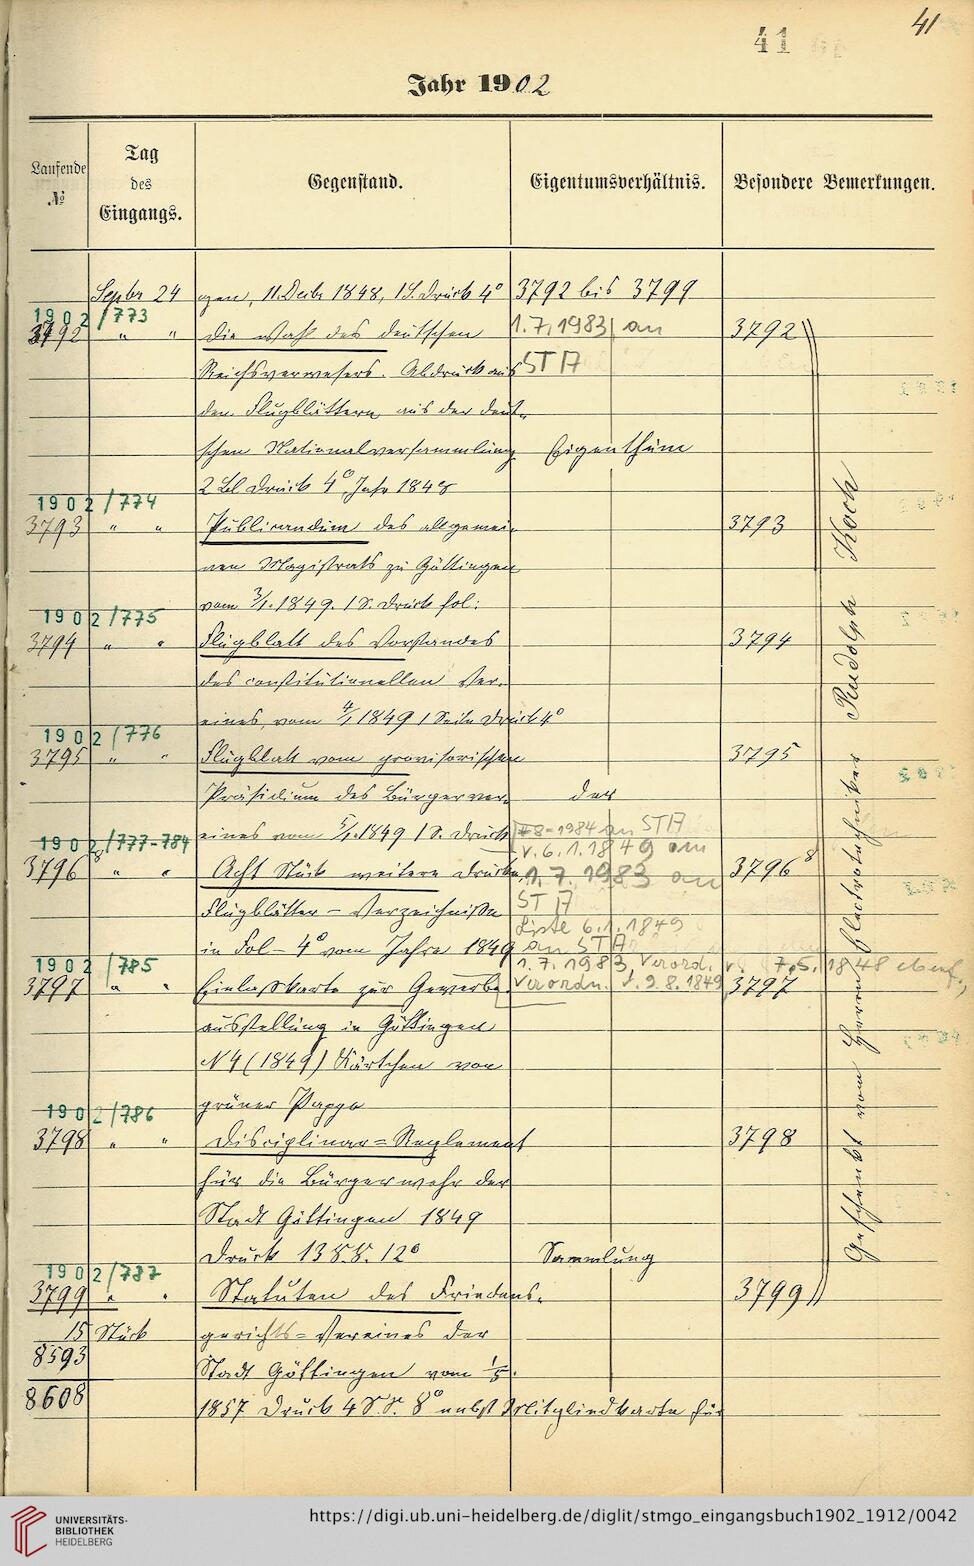 41
41
Jahr 1902
Laufende
№
Tag
des
Eingangs.
Gegenstand.
Eigentumsverhältnis.
Besondere Bemerkungen.
Septbr 24 gen, 11. Decbr 1848, 1 S. Druck 4° 3792 bis 3799
1902/773
3792 " " Die Wahl des deutschen 1.7.1983 an 3792
Reichsverwesers. Abdruck aus ST A
den Flugblättern aus der deut-
schen Nationalversammlung Eigenthum
2 Bl Druck 4° Jahr 1848
1902/774
3793 " " Publicandum des allgemei- 3793
nen Magistrats zu Göttingen
vom 3/1. 1849. 1 S. Druck fol:
1902/775
3794 " " Flugblatt des Vorstandes 3794
des constitutionellen Ver-
eines, vom 4/1 1849 1 Seite Druck 4°
1902/776
3795 " " Flugblatt vom provisorischen 3795
Präsidium des Bürgerver- der
eines vom 5/1. 1849 1 S. Druck 1984 an STA
1902/777-784 v. 6.1.1849 am
3796 8 " " Acht Stück weitere Drucke, 1.7.1983 an 3796 8
Flugblätter – Verzeichniße ST A
Liste 6.1.1849
in Fol – 4° vom Jahre 1849 an STA
1902/785 1.7.1983, Verord. v. 7.5.1848 ebenf.,
3797 " " Einlaßkarte zur Gewerbe- Verordn. v. 9.8.1849 3797
ausstellung in Göttingen
N 4 (1849) Kärtchen von
grüner Pappe
1902/786
3798 " " Disciplinar=Reglement 3798
für die Bürgerwehr der
Stadt Göttingen 1849
Druck 13 S.S. 12° Sammlung
1902/787
3799 " " Statuten des Friedens- 3799
15 Stück gerichts=Vereines der
8593
Stadt Göttingen vom 1/5.
8608
1857 Druck 4 S.S. 8° nebst Mitgliedkarte für
Geschenkt vom Herrn Electrotechniker Rudolph Koch
UNIVERSITÄTS-
BIBLIOTHEK
HEIDELBERG
https://digi.ub.uni-heidelberg.de/diglit/stmgo_eingangsbuch1902_1912/0042